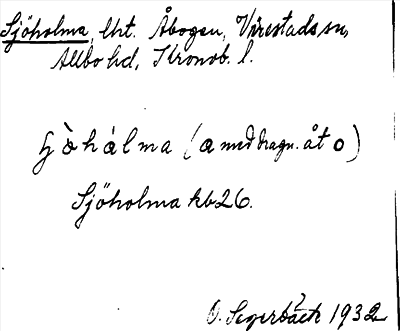 Sjöholma, lht. Åbogen, Virestads sn,
Allbo hd, Kronob. l.
hòhálma (a med dragn. åt o)
Sjöholma kb 26.
O. Segerbäck 1932